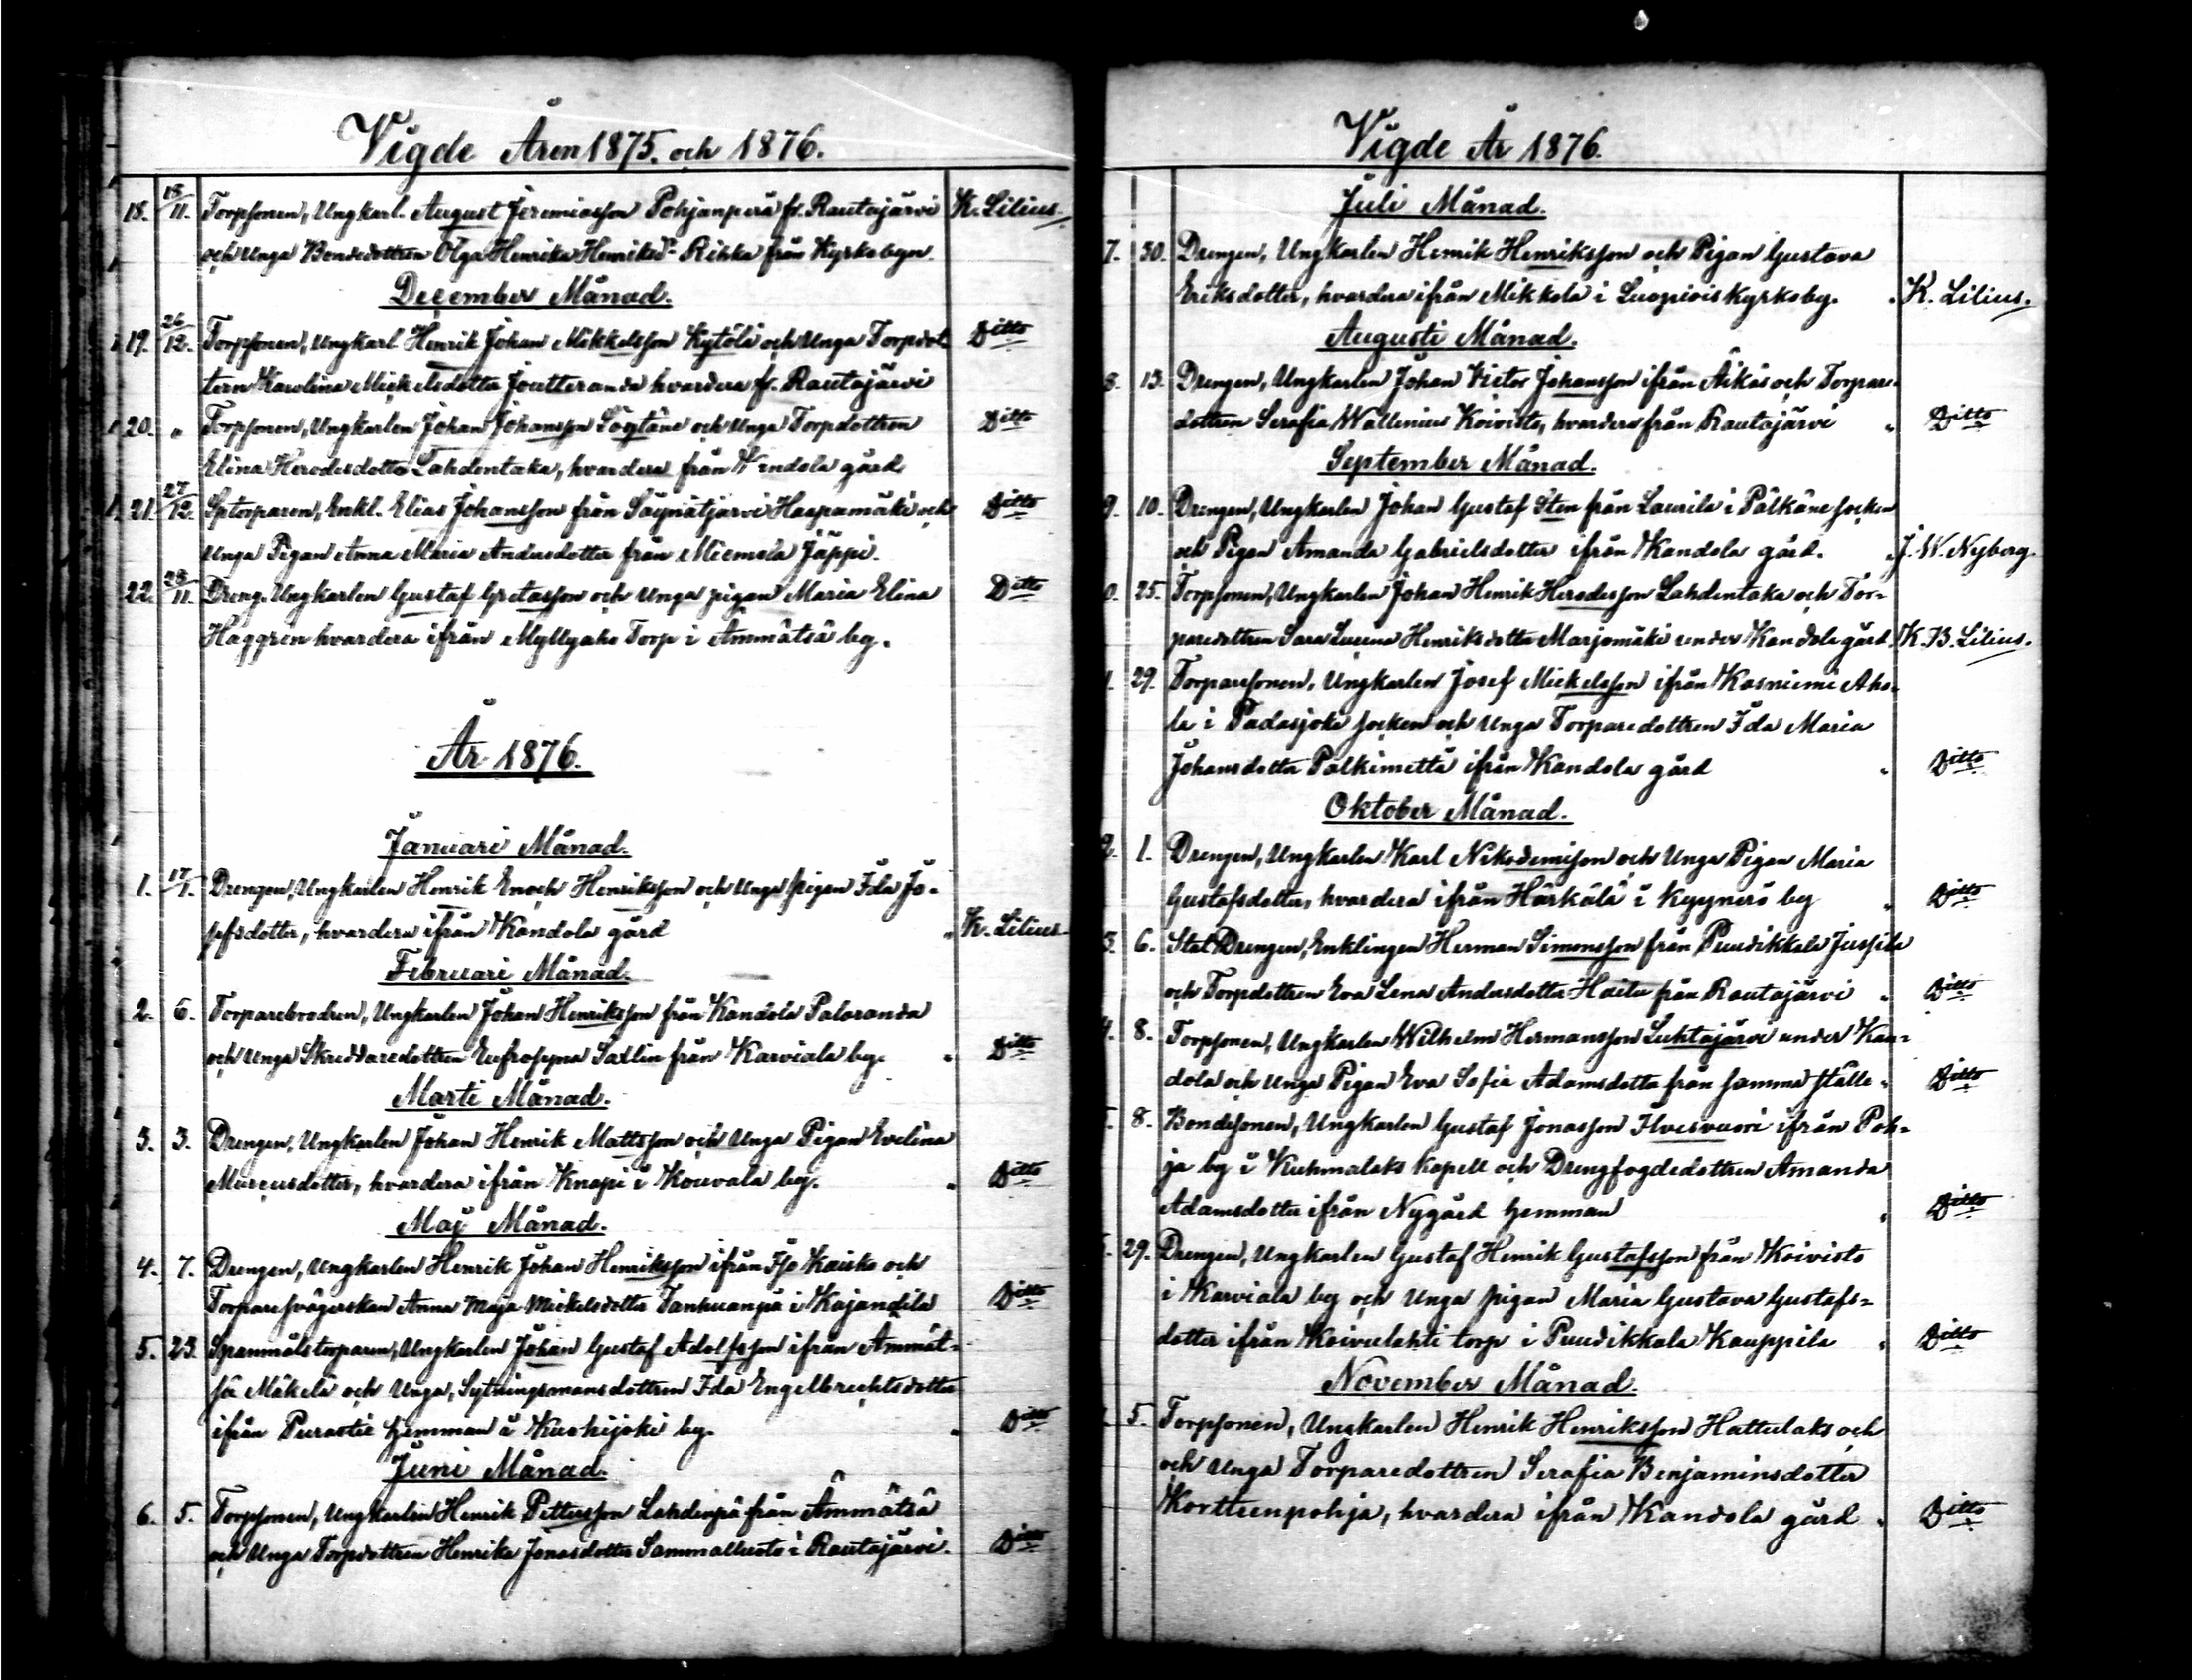 Vigde Åren 1875. och 1876.
18. 18/11. Torpsonen, Ungkarl. August Jeremiasson Pohjanperä fr. Rautajärvi K. Lilius.
och Unga Bondedottren Olga Henrika Henriksdr. från Kyrkobyn
December Månad.
19. 26/12. Torpsonen, Ungkarl. Henrik Johan Mikkelsson Kytölä och Unga Torpdot-
tern Karolina Mickelsdotter hvardera fr. Rautajärvi Ditto
20. " Torpsonen, Ungkarlen Johan Johansson och Unga Torpdottren Ditto
Elina Herodesdotter Lahdentaka, hvardera från gård
21. 27/12. Sptorparen, Enkl. Elias Johansson från Haapamäki och Ditto
Unga Pigan Anna Maria Andersdotter från Jäppi.
22. 28/11. Dreng. Ungkarlen Gustaf Gretasson och Unga pigan Maria Elina Ditto
Haggren hvardera ifrån Myllyaho Torp i Ämmätsä by.
År 1876.
Januari Månad.
1. 17/1. Drengen, Ungkarlen Henrik Enoch Henriksson och Unga pigan Ida Jo-
sefsdotter, hvardera ifrån Kandola gård " K. Lilius
Februari Månad.
2. 6. Torparebrodren, Ungkarlen Johan Henriksson från Kandola Paloranda
och Unga Skreddaredottren Eufrosyna Saxlin från Karviala by. " Ditto
Marti Månad.
3. 3. Drengen, Ungkarlen Johan Henrik Mattsson och Unga Pigan Evelina
Marcusdotter, hvardera ifrån Knapi i Kouvala by. " Ditto
Maj Månad.
4. 7. Drengen, Ungkarlen Henrik Johan Henriksson ifrån Iso Kaisko och
Torparesvägerskan Anna Maja Mickelsdotter i Kajandila Ditto
5. 23. Spanmålstorparen, Ungkarlen Johan Gustaf Adolfsson ifrån Ämmät-
sä Mäkelä och Unga, Sytningsmansdottren Ida Engelbrechtsdotter
ifrån Purastie hemman å Kuohijoki by. " Ditto
Juni Månad.
6. 5. Torpsonen, Ungkarlen Henrik Pettersson Lahdenpä från Ämmätsä
och Unga Torpdottren Henrika Jonasdotter Sammallusto i Rautajärvi. Ditto
Vigde År 1876.
Juli Månad.
7. 30. Drengen, Ungkarlen Henrik Henriksson och Pigan Gustava
Eriksdotter, hvardera ifrån Mikkola i Luopiois Kyrkoby. " K. Lilius.
Augusti Månad.
8. 13. Drengen, Ungkarlen Johan Victor Johansson ifrån Äikäs och Torpare-
dottren Serafia Wallenius Koivisto, hvardera från Rautajärvi " Ditto
September Månad.
9. 10. Drengen, Ungkarlen Johan Gustaf Sten från Laurila i Pälkäne socken
och Pigan Amanda Gabrielsdotter ifrån Kandola gård. " J. W. Nyberg.
0. 25. Torpsonen, Ungkarlen Johan Henrik Herodesson Lahdentaka och Tor-
paredottren Sara Henriksdotter Marjomäki under Kandola gård. K. B. Lilius.
1. 29. Torparesonen, Ungkarlen Josef Mickelsson ifrån Kasniemi Aho-
la i Padasjoki socken och Unga Torparedottren Ida Maria
Johansdotter ifrån Kandola gård " Ditto
Oktober Månad.
2. 1. Drengen, Ungkarlen Karl Nikodemisson och Unga Pigan Maria
Gustafsdotter, hvardera ifrån Härkälä i Kyynerö by " Ditto
3. 6. Stat Drengen, Enklingen Herman Simonsson från Puudikkala Jussila
och Torpdottren Eva Lena Andersdotter Haitu från Rautajärvi " Ditto
4. 8. Torpsonen, Ungkarlen Wilhelm Hermansson Luhtajärvi under Kan-
dola och Unga Pigan Eva Sofia Adamsdotter från samma ställe " Ditto
5. 8. Bondesonen, Ungkarlen Gustaf Jonasson Ilvesvuori ifrån Poh-
ja by i Kuhmalaks Kapell och Drengfogdedottren Amanda
Adamsdotter ifrån Nygård hemman " Ditto
29. Drengen, Ungkarlen Gustaf Henrik Gustafsson från Koivisto
i Karviala by och Unga pigan Maria Gustava Gustafs-
dotter ifrån Koivulahti torp i Puudikkala Kauppila " Ditto
November Månad.
5. Torpsonen, Ungkarlen Henrik Henriksson Hattulaks och
och Unga Torparedottren Serafia Benjaminsdotter
Korttenpohja, hvardera ifrån Kandola gård " Ditto